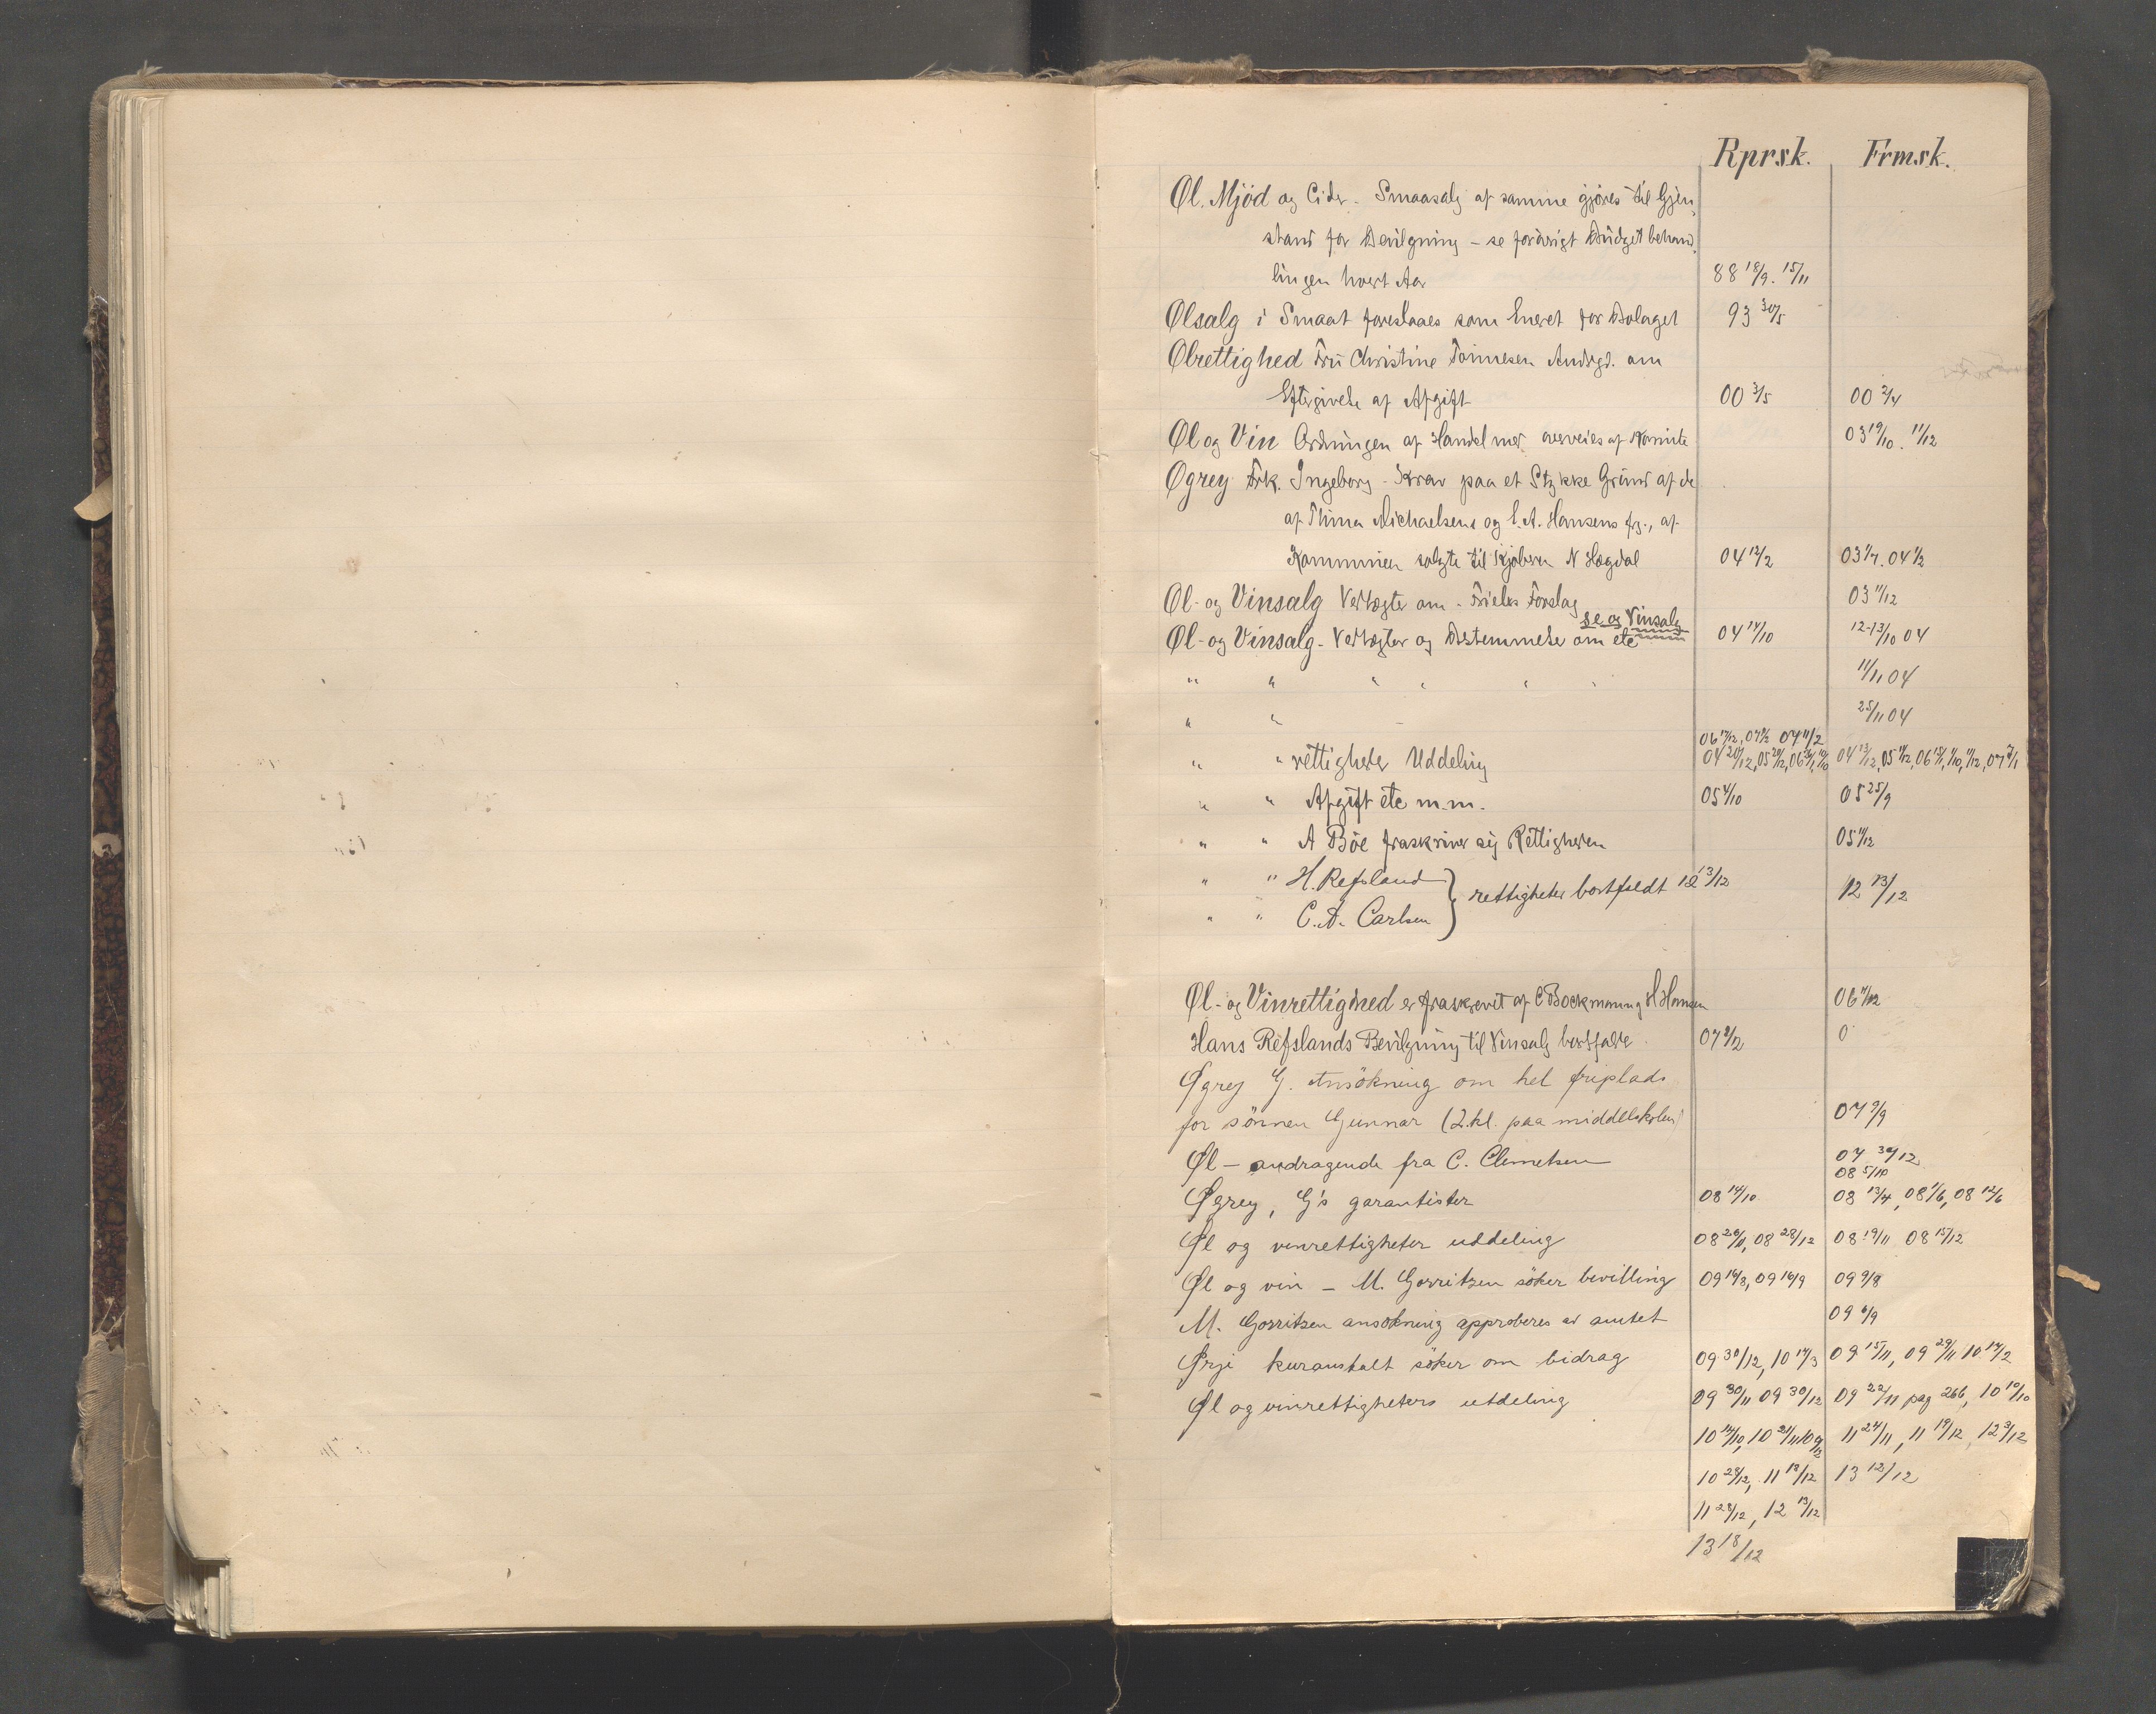 Rprsk. Frmsk.
Øl, Mjöd og Cider. Smaasalg af samme gjöres til Gjen-
stand for Bevilgning - se forövrigt Budgetbehand-
lingen hvert Aar 88 18/9. 15/11
Ølsalg i Smaat foreslaaes som Eneret for Bolaget 93 30/5
Ølrettighed Fru Christine Tönnesen Andrgd. om
Eftergivelse af Afgift 00 3/5 00 2/4
Øl og Vin Ordningen af Handel med overveies af Komite 03 19/10. 11/12
Øgrey Frk. Ingeborg - Krav paa et Stykke Grund af de
af Thina Michaelsens og L.A. Hansens frg., af
Kommunen solgte til Kjöbm N Hægdal 04 12/2 03 1/7. 04 1/2
Øl- og Vinsalg Vedtægter om - Fælles Forslag 03 11/12
se og Vinsalg
Øl- og Vinsalg - Vedtægter og Bestemmelse om etc 04 14/10 12-13/10 04
" " " " " " 11/11 04
" " - 25/11 04
06 17/12, 07 2/2 04 11/2
" " rettigheder Uddeling 04 20/12, 05 20/12, 06 26/1, 10/10 04 13/12, 05 11/12, 06 15/1, 1/10, 11/12, 07 2/1
" " Afgift etc m.m. 05 4/10 05 25/9
" " A Böe fraskriver sig Rettigheden 05 11/12
" " H. Refsland } rettigheter bortfaldt 12 13/12 12 13/12
" " C. A. Carlsen
Øl- og Vinrettighed er fraskrevet af C Bockmann og H Hansen 06 11/12
Hans Refslands Bevilgning til Vinsalg bortfaldt 07 2/2 0
Øgrey G. Ansökning om hel friplads
for sönnen Gunnar (2. kl. paa middelskolen) 07 9/9
Øl - andragende fra C. Clemetsen 07 30/12
08 5/10
Øgrey, G's garantister 08 14/10 08 13/4, 08 1/6, 08 12/6
Øl og vinrettigheter uddeling 08 26/11, 08 28/12 08 19/11 08 15/12
Øl og vin - M. Gorritzen söker bevilling 09 14/8, 09 16/9 09 9/8
M. Gorritzen ansökning approberes av amtet 09 6/9
Ørje kuranstalt söker om bidrag 09 30/12, 10 14/3 09 15/11, 09 29/11 10 14/2
Øl og vinrettigheters utdeling 09 30/11 09 30/12 09 22/11 pag 266, 10 10/10
10 14/10, 10 21/11 10 9/12 11 24/11, 11 19/12, 12 3/12
10 28/12, 11 18/12 13 12/12
11 28/12, 12 13/12
13 18/12